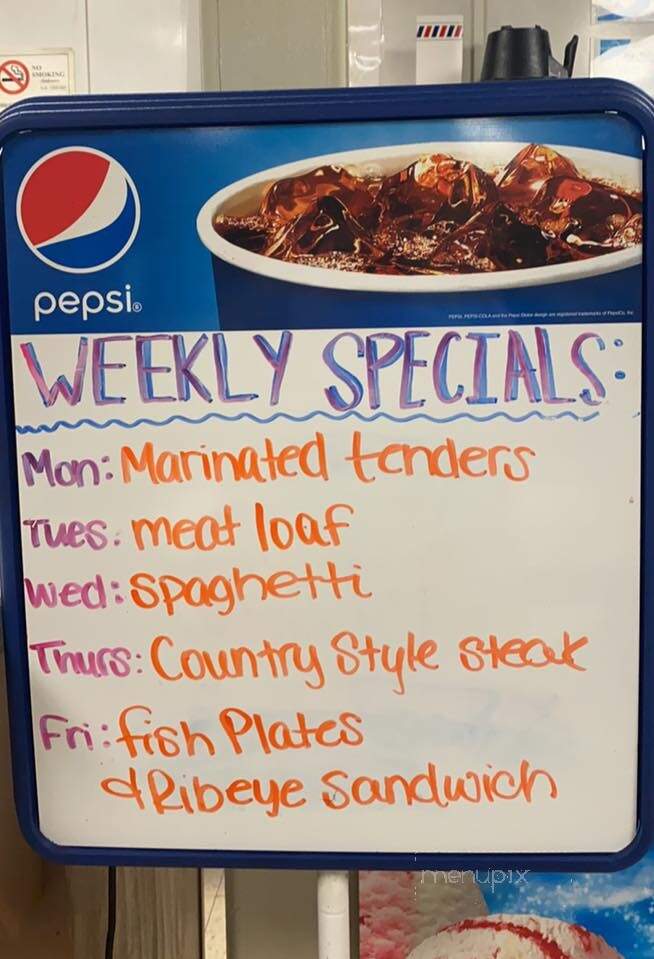 NO
SMOKING
pepsi®
PEPSI, PEPSI-COLA and the Pepsi Globe design are registered trademarks of PepsiCo, Inc.
WEEKLY SPECIALS:
Mon: Marinated tenders
Tues: meat loaf
Wed: spaghetti
Thurs: Country Style steak
Fri: fish Plates
& Ribeye Sandwich
menupix